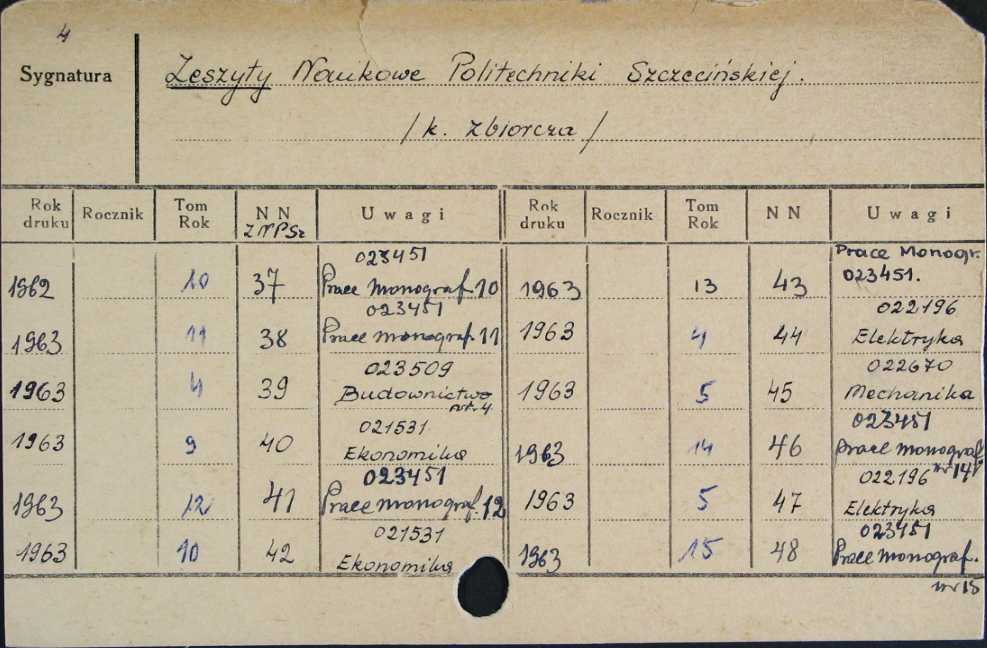 4
Sygnatura
Zeszyty Naukowe Politechniki Szczecińskiej.
/k. zbiorcza/
Rok druku Rocznik Tom Rok N N ZNPSz Uwagi Rok druku Rocznik Tom Rok N N Uwagi
1962 10 37 023451 Prace Monograf. 10
1963 11 38 023451 Prace monograf. 11
1963 4 39 023509 Budownictwo nr. 4
1963 9 40 021531 Ekonomika
1963 12 41 023451 Prace monograf. 12
1963 10 42 021531 Ekonomika
1963 13 43 Prace Monogr. 023451.
1963 4 44 022196 Elektryka
1963 5 45 022670 Mechanika
1963 14 46 023451 Prace Monograf nr 14
1963 5 47 022196 Elektryka
1963 15 48 023451 Prace Monograf. nr 15